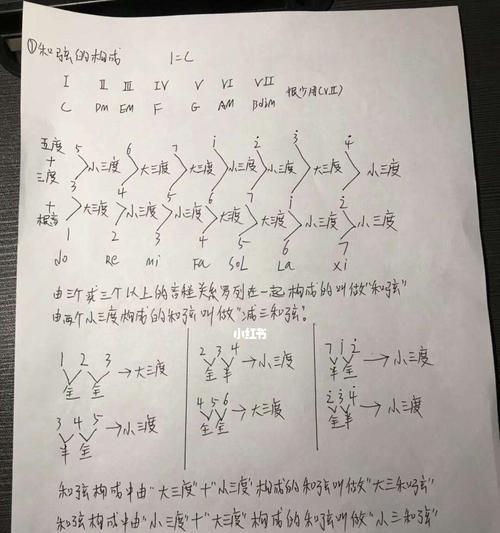 ①和弦的构成 1=C
I II III IV V VI VII 很少用(VII)
C Dm Em F G Am Bdim
五度 5 6 7 i 2 3 4
+ 小三度 大三度 大三度 小三度 小三度 大三度 小三度
三度 3 4 5 6 7 i 2
+ 大三度 小三度 小三度 大三度 大三度 小三度 小三度
根音 1 2 3 4 5 6 7
do Re mi Fa SoL La xi
由三个或三个以上的音程关系罗列在一起构成的叫做"和弦"
由两个小三度构成的和弦叫做"减三和弦"。
小红书
1 2 3 → 大三度
全 全
2 3 4 → 小三度
全 半
7 i 2 → 小三度
半 全
3 4 5 → 小三度
半 全
4 5 6 → 大三度
全 全
2 3 4 → 小三度
全 半
和弦构成中由"大三度"+"小三度"构成的和弦叫做"大三和弦"
和弦构成中由"小三度"+"大三度"构成的和弦叫做"小三和弦"